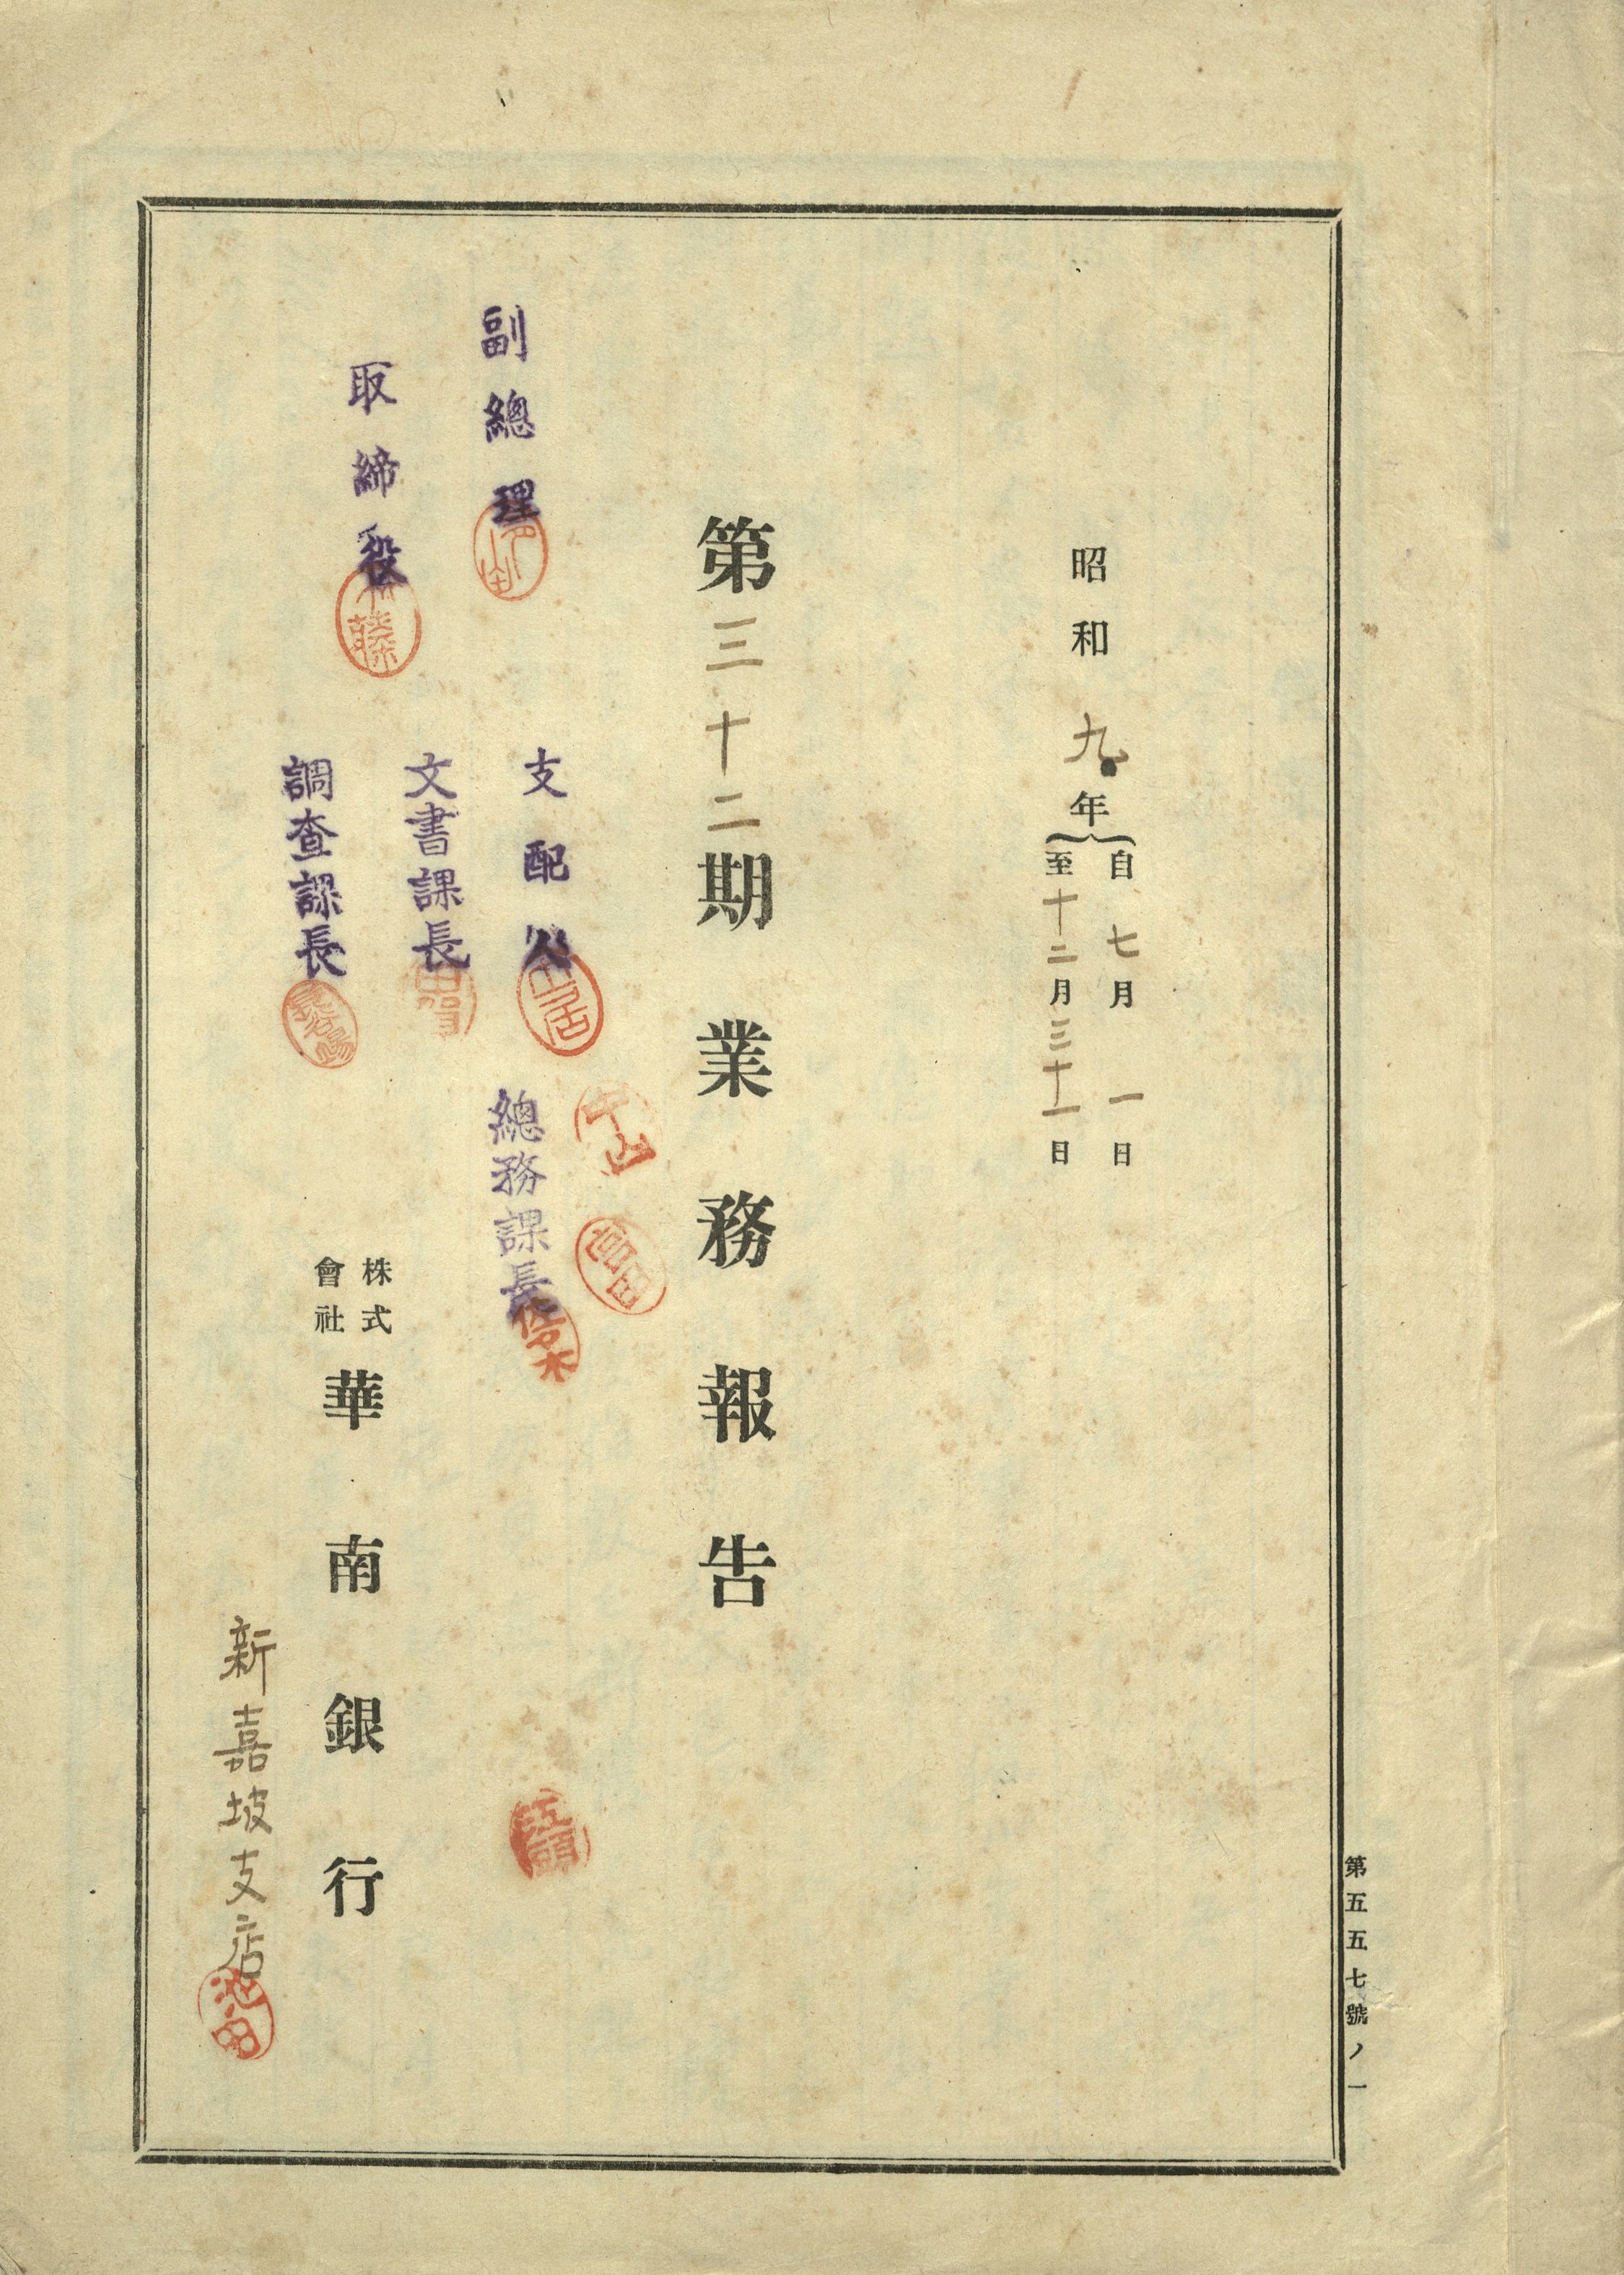 昭和九年
自七月一日
至十二月三十一日
第三十二期業務報告
副總理
取締役
支配人
文書課長
調査課長
中山
富田
總務課長
佐々木
江頭
株式會社
華南銀行
新嘉坡支店
池田
第五五七號ノ一